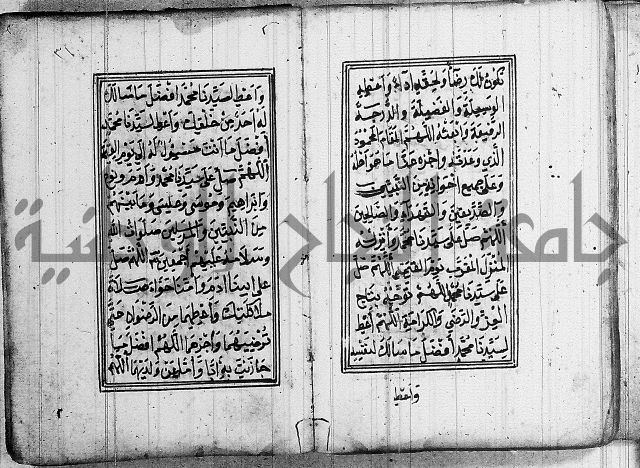 تكون لك رضآء ولحقه اداء واعطه
الوسيلة والفضيلة والدرجة
الرفيعة وابعثه اللهم المقام المحمود
الذي وعدته واجزه عنا ما هو اهله
وعلى جميع اخوانه من النبيين
والصديقين والشهداء والصالحين
اللهم صل على سيدنا محمد وانزله
المنزل المقرب يوم القيمة اللهم صل
على سيدنا محمد اللهم توجه بتاج
العز والرضى والكرامة اللهم اعط
لسيدنا محمد افضل ما سالك لنفسه
واعط
واعط لسيدنا محمد افضل ما سالك
له احد من خلقك واعط لسيدنا محمد
افضل ما انت مسئول له الى يوم القيمة
اللهم صل على سيدنا محمد وادم ونوح
وابراهيم وموسى وعيسى وما بينهم
من النبيين والمرسلين صلوات الله
وسلامه عليهم اجمعين اللهم صل
على ابينا ادم وامنا حواء صلاة
ملائكتك واعطهما من الرضوان حتى
ترضيهما واجزهما اللهم افضل ما
جازيت به ابا واما عن ولديهما اللهم
جامعة النجاح الوطنية